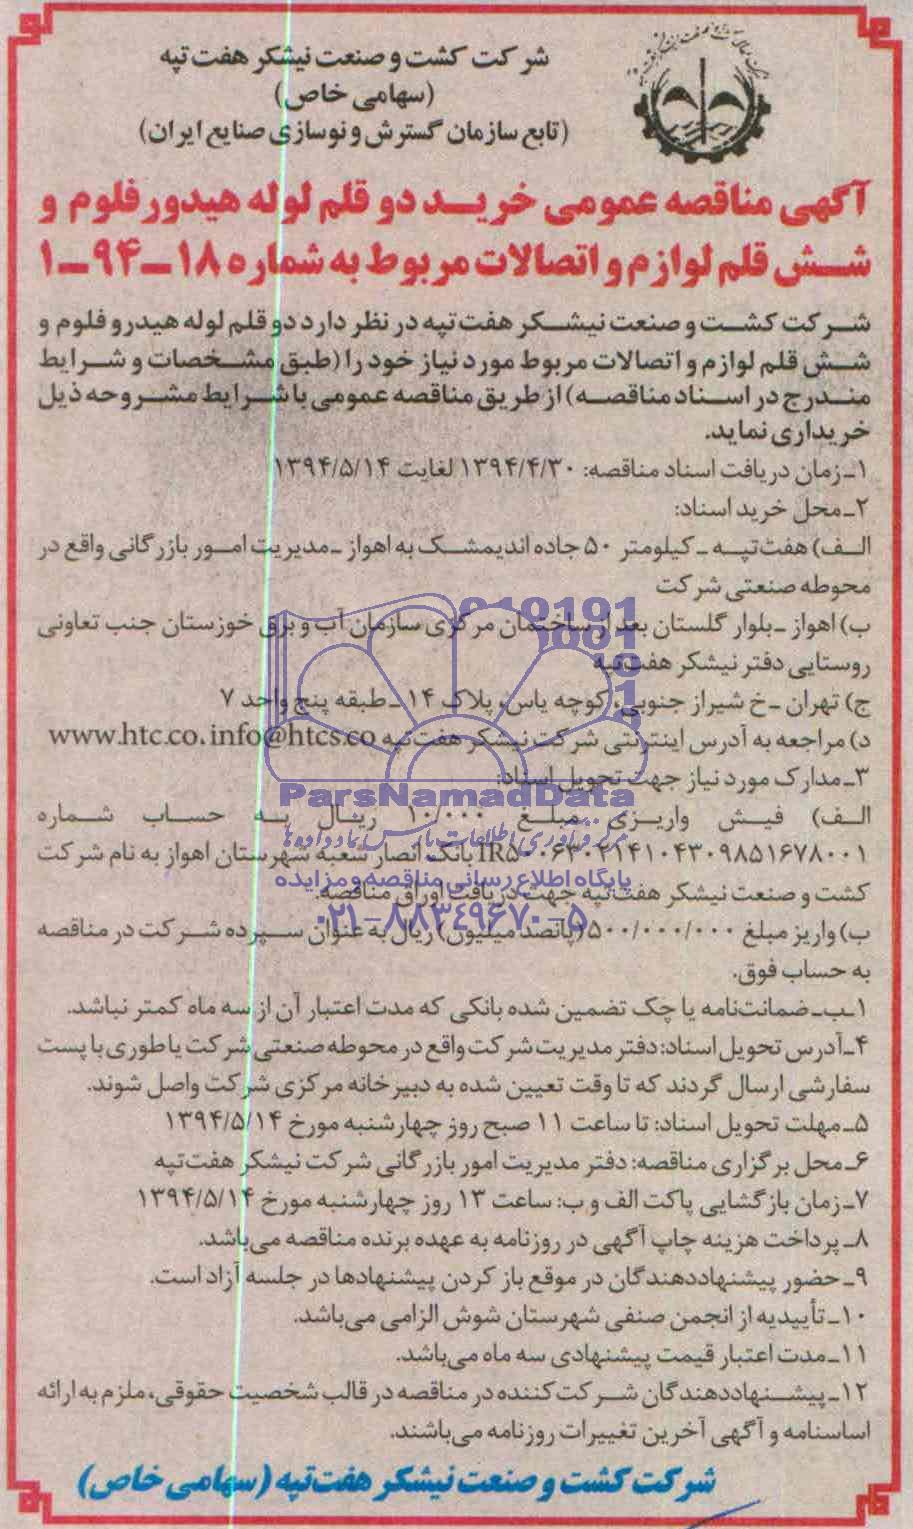 شرکت کشت و صنعت نیشکر هفت تپه
(سهامی خاص)
(تابع سازمان گسترش و نوسازی صنایع ایران)
آگهی مناقصه عمومی خرید دو قلم لوله هیدور فلوم و
شش قلم لوازم و اتصالات مربوط به شماره ۱۸-۹۴-۱
شرکت کشت و صنعت نیشکر هفت تپه در نظر دارد دو قلم لوله هیدرو فلوم و
شش قلم لوازم و اتصالات مربوط مورد نیاز خود را (طبق مشخصات و شرایط
مندرج در اسناد مناقصه) از طریق مناقصه عمومی با شرایط مشروحه ذیل
خریداری نماید.
۱ـ زمان دریافت اسناد مناقصه: ۱۳۹۴/۴/۳۰ لغایت ۱۳۹۴/۵/۱۴
۲ـ محل خرید اسناد:
الف) هفت تپه ـ کیلومتر ۵۰ جاده اندیمشک به اهواز ـ مدیریت امور بازرگانی واقع در
محوطه صنعتی شرکت
ب) اهواز ـ بلوار گلستان بعد از ساختمان مرکزی سازمان آب و برق خوزستان جنب تعاونی
روستایی دفتر نیشکر هفت تپه
ج) تهران ـ خ شیراز جنوبی، کوچه یاس، پلاک ۱۴ ـ طبقه پنج واحد ۷
د) مراجعه به آدرس اینترنتی شرکت نیشکر هفت تپه www.htc.co.info@htcs.co
۳ـ مدارک مورد نیاز جهت تحویل اسناد:
ParsNamadData
الف) فیش واریزی مبلغ ۱۰/۰۰۰ ریال به حساب شماره
مرکز فرآوری اطلاعات پارس نماد داده ها
بانک انصار شعبه شهرستان اهواز به نام شرکت
پایگاه اطلاع رسانی مناقصه و مزایده
کشت و صنعت نیشکر هفت تپه جهت دریافت اوراق مناقصه.
۰۲۱-۸۸۳۴۹۶۷۰-۵
ب) واریز مبلغ ۵۰۰/۰۰۰/۰۰۰ (پانصد میلیون) ریال به عنوان سپرده شرکت در مناقصه
به حساب فوق.
۱ـ ب ـ ضمانت‌نامه یا چک تضمین شده بانکی که مدت اعتبار آن از سه ماه کمتر نباشد.
۴ـ آدرس تحویل اسناد: دفتر مدیریت شرکت واقع در محوطه صنعتی شرکت یا طوری با پست
سفارشی ارسال گردند که تا وقت تعیین شده به دبیرخانه مرکزی شرکت واصل شوند.
۵ـ مهلت تحویل اسناد: تا ساعت ۱۱ صبح روز چهارشنبه مورخ ۱۳۹۴/۵/۱۴
۶ـ محل برگزاری مناقصه: دفتر مدیریت امور بازرگانی شرکت نیشکر هفت تپه
۷ـ زمان بازگشایی پاکت الف و ب: ساعت ۱۳ روز چهارشنبه مورخ ۱۳۹۴/۵/۱۴
۸ـ پرداخت هزینه چاپ آگهی در روزنامه به عهده برنده مناقصه می‌باشد.
۹ـ حضور پیشنهاددهندگان در موقع باز کردن پیشنهادها در جلسه آزاد است.
۱۰ـ تأییدیه از انجمن صنفی شهرستان شوش الزامی می‌باشد.
۱۱ـ مدت اعتبار قیمت پیشنهادی سه ماه می‌باشد.
۱۲ـ پیشنهاددهندگان شرکت کننده در مناقصه در قالب شخصیت حقوقی، ملزم به ارائه
اساسنامه و آگهی آخرین تغییرات روزنامه می‌باشند.
شرکت کشت و صنعت نیشکر هفت تپه (سهامی خاص)